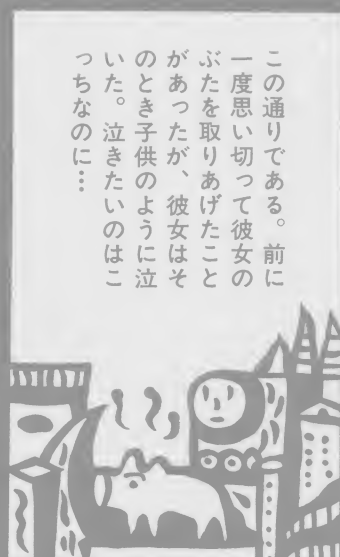 この通りである。前に
一度思い切って彼女の
ぶたを取りあげたこと
があったが、彼女はそ
のとき子供のように泣
いた。泣きたいのはこ
っちなのに…